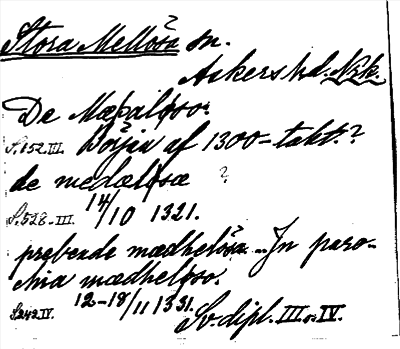 Stora Mellösa sn.
Askers hd. Nrk.
De Mæþaløso.
S.152.III. Början af 1300-talet.?
de medæløsæ ?
S.528.III. 14/10 1321.
prebende mædheløsa ... In paro-
chia mædheløso.
S242.IV. 12-18/11 1331.
Sv. dipl. III o. IV.